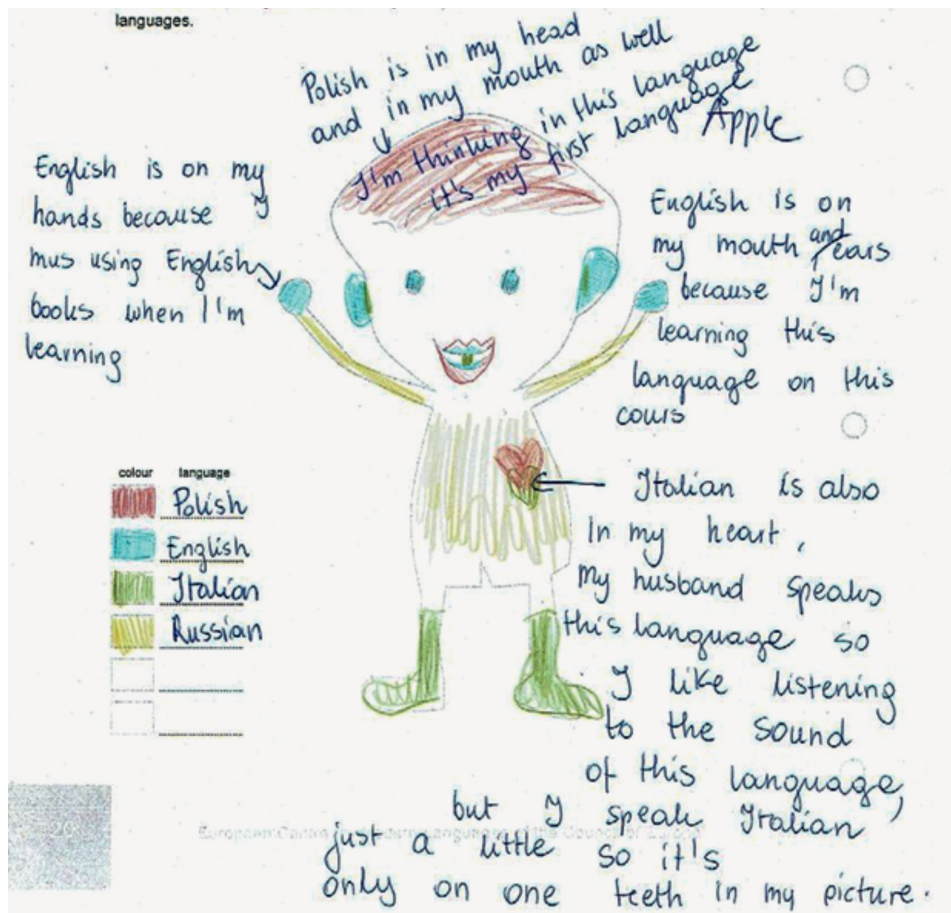 languages.
Polish is in my head
and in my mouth as well
I'm thinking in this language
it's my first language
Apple
English is on my
hands because I
mus using English
books when I'm
learning
English is on
my mouth and ears
because I'm
learning this
language on this
cours
colour language
Polish
English
Italian
Russian
Italian is also
In my heart,
my husband speaks
this language so
I like listening
to the sound
of this language,
but I speak Italian
just a little so it's
only on one teeth in my picture.
20
European Centre for Modern Languages of the Council of Europe